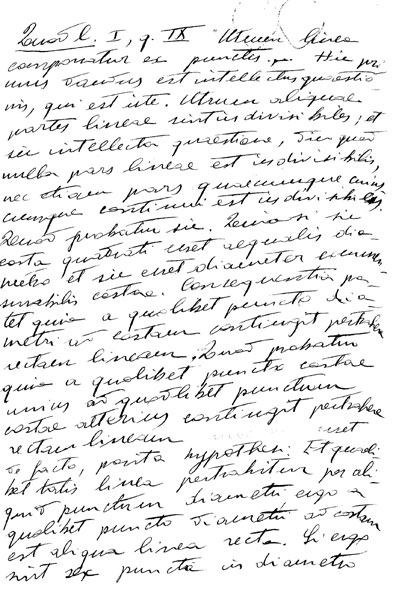 Quod l. I, q. IX Utrum linea
componatur ex punctis. Hic pri
mus dandus est intellectus quaestio
nis, qui est iste. Utrum aliquae
partes lineae sint indivisibiles; et
sic intellecta quaestione, dico quod
nulla pars lineae est indivisibilis,
nec etiam pars quaecumque cuius
cumque continui est indivisibilis.
Quod probatur sic. Quia si sic
costa quadrati esset aequalis dia
metro et sic esset diameter commen
surabilis costae. Consequentia pa
tet quia a quolibet puncto dia
metri ad costam contingit pertrahere
rectam lineam. Quod probatur
quia a quolibet puncto costae
unius ad quodlibet punctum
costae alterius contingit pertrahere
rectam lineam esset
de facto, posita hypothesi. Et quaeli
bet talis linea pertrahitur per ali
quod punctum diametri ergo a
quolibet puncto diametri ad costam
est aliqua linea recta. Si ergo
sint sex puncta in diametro